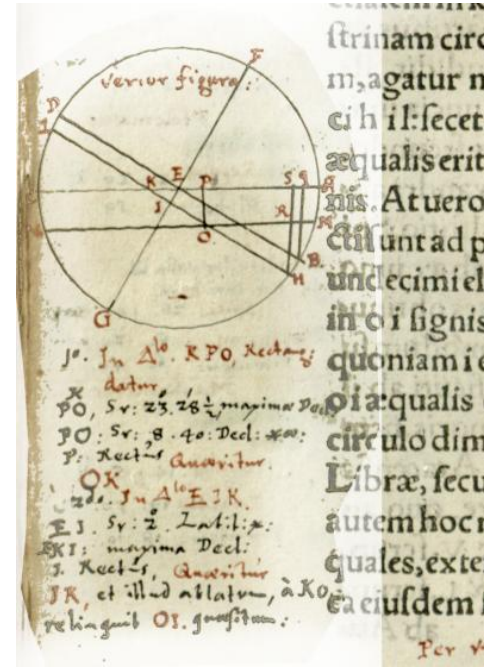 Verior figura:
F
D
I
K E P S Q A
I R N
O
B
H
G
1º. In Δlo. KPO, Rectang:
datur
PO, Sr: 23. 28 ½, maxima Decl
PO: Sr: 8. 40: Decl:
P: Rectus Quæritur.
OK
2do. In Δlo EIK.
EI. Sr: 2. Latit:
EKI: maxima Decl:
I. Rectus, Quæritur
IK, et illud ablatum, à KO,
relinquit OI. quæsitum:
strinam circ
m, agatur n
ci h i l: secet
æqualis erit
nis. At uero
ctil unt ad p
undecimi el
in o i signis
quoniam i e
o i æqualis
circulo dim
Libræ, secu
autem hoc n
quales, exte
ea eiusdem
Per